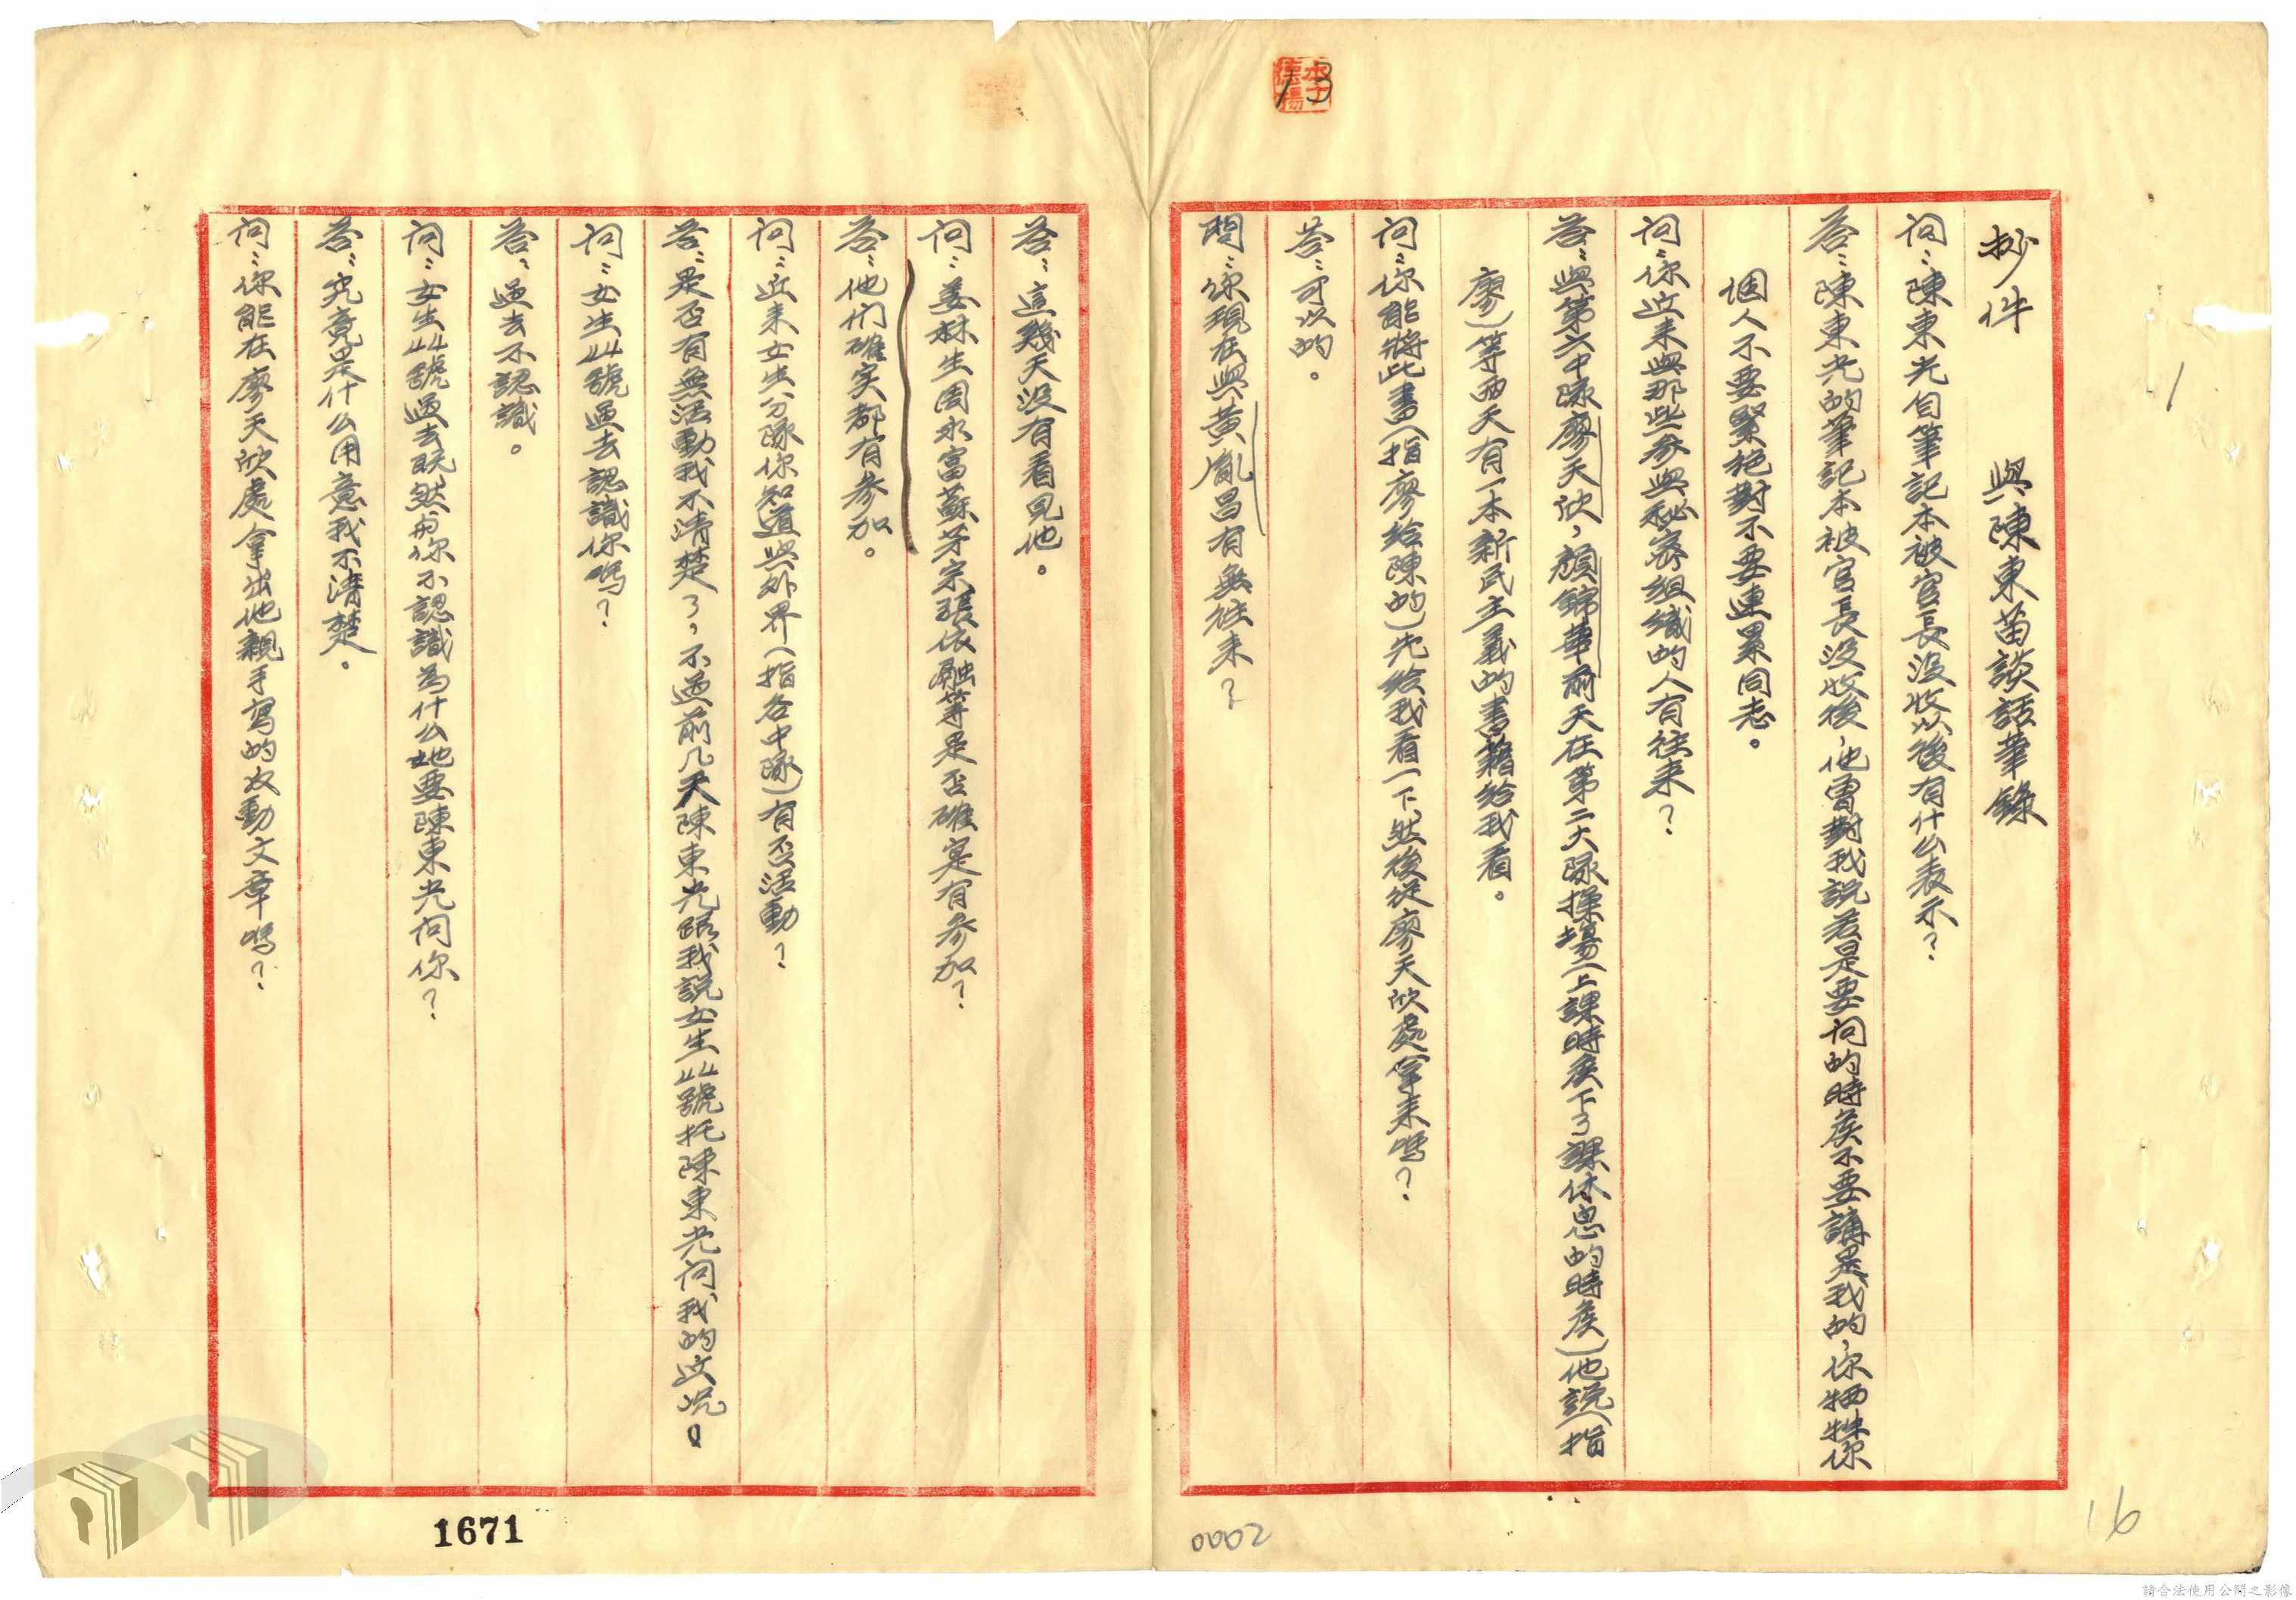 抄件　與陳東苗談話筆錄
问：陳東光自筆記本被官長沒收以後有什么表示？
答：陳東光的筆記本被官長沒收後，他曾對我説若是要问的時候不要講是我的，你牺牲你
個人不要緊絶對不要連累同志。
问：你近来與那些参與秘密组織的人有往来？
答：與第六中隊廖天欣，顏錦華前天在第二大隊操場（上課時候下了課休息的時候）他説（指
廖）等两天有一本新民主義的書籍给我看。
问：你能將此書（指廖给陳的）先给我看一下，然後從廖天欣處拿来嗎？
答：可以的。
問：你現在與黃胤昌有無往来？
答：這幾天没有看見他。
问：姜林生周永富蘇芽宗張依融等是否確寔有参加？
答：他们確实都有参加。
问：近来女生分隊你知道與外界（指各中隊）有否活動？
答：是否有無活動我不清楚了，不過前几天陳東光跟我説女生44號托陳東光问我的近况。
问：女生44號過去認識你嗎？
答：過去不認識。
问：女生44號過去既然与你不認識為什么她要陳東光问你？
答：究竟是什么用意我不清楚。
问：你能在廖天欣處拿出他親手寫的反動文章嗎？
13
1
16
0002
1671
請合法使用公開之影像